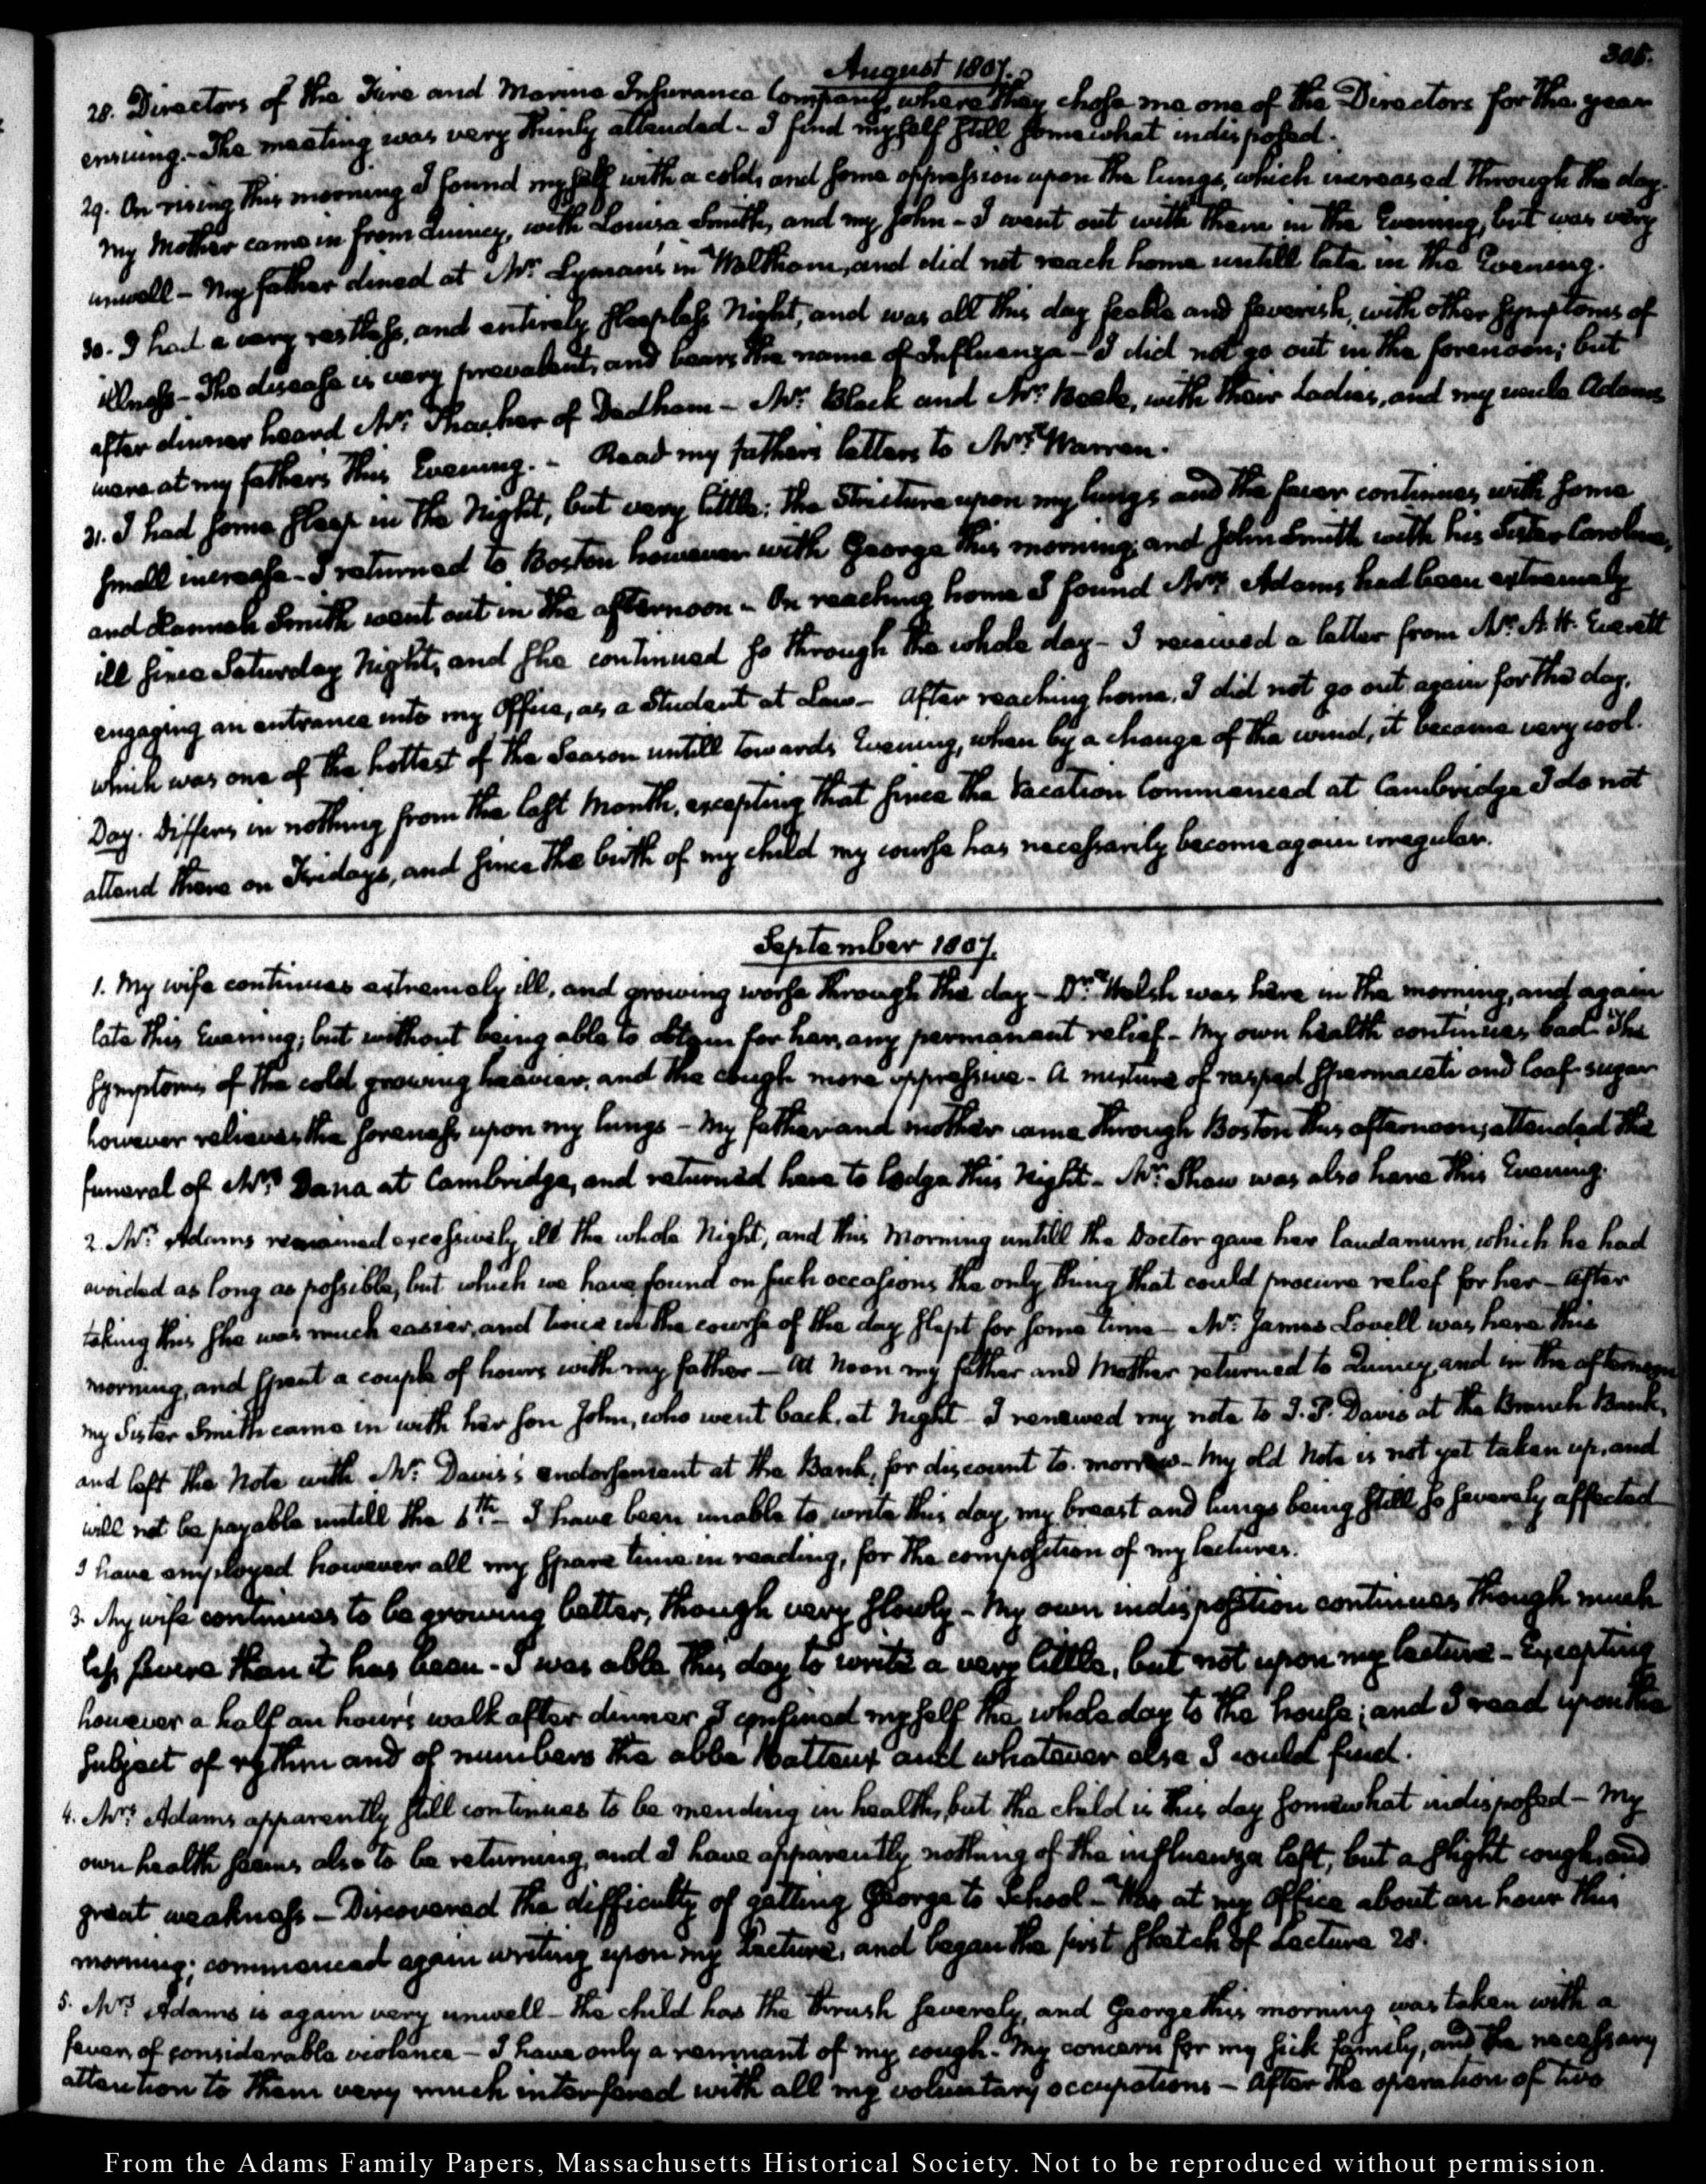 305.
August 1807.
28. Directors of the Fire and Marine Insurance Company, where they chose me one of the Directors for the year
ensuing.- The meeting was very thinly attended - I find myself still somewhat indisposed.
29. On rising this morning I found myself with a cold, and some oppression upon the lungs, which increased through the day.
My Mother came in from Quincy, with Louisa Smith, and my John - I went out with them in the Evening, but was very
unwell - My father dined at Mr. Lyman's in Waltham, and did not reach home untill late in the Evening.
30. I had a very restless, and entirely sleepless Night, and was all this day feeble and feverish, with other symptoms of
illness - The disease is very prevalent, and bears the name of Influenza - I did not go out in the forenoon; but
after dinner heard Mr. Thacher of Dedham - Mr. Black and Mr. Beale, with their Ladies, and my uncle Adams
were at my fathers this Evening. - Read my father's letters to Mrs. Warren.
31. I had some sleep in the Night, but very little; the Stricture upon my lungs and the fever continues, with some
small increase - I returned to Boston however with George this morning; and John Smith with his Sister Caroline,
and Hannah Smith went out in the afternoon - On reaching home I found Mrs. Adams had been extremely
ill since Saturday Night, and she continued so through the whole day - I received a letter from Mr. A. H. Everett
engaging an entrance into my Office, as a Student at Law - After reaching home, I did not go out again for the day,
which was one of the hottest of the Season untill towards Evening, when by a change of the wind, it became very cool.
Day. Differs in nothing from the last Month, excepting that since the Vacation Commenced at Cambridge I do not
attend there on Fridays, and since the birth of my child my course has necessarily become again irregular.
September 1807.
1. My wife continues extremely ill, and growing worse through the day - Dr. Welsh was here in the morning, and again
late this Evening; but without being able to obtain for her, any permanent relief - My own health continues bad. The
symptoms of the cold growing heavier, and the cough more oppressive - A mixture of rasped spermaceti and loaf-sugar
however relieves the soreness upon my lungs - My father and mother came through Boston this afternoon, attended the
funeral of Mrs. Dana at Cambridge, and returned here to lodge this Night - Mr. Shaw was also here this Evening.
2. Mrs. Adams remained excessively ill the whole Night, and this Morning untill the Doctor gave her laudanum, which he had
avoided as long as possible, but which we have found on such occasions the only thing that could procure relief for her - After
taking this she was much easier, and twice in the course of the day slept for some time - Mr. James Lovell was here this
morning, and spent a couple of hours with my father - At Noon my father and Mother returned to Quincy, and in the afternoon
my Sister Smith came in with her son John, who went back, at Night - I renewed my note to I. P. Davis at the Branch Bank,
and left the Note with Mr. Davis's endorsement at the Bank, for discount to-morrow - My old Note is not yet taken up, and
will not be payable untill the 6th - I have been unable to write this day, my breast and lungs being still so severely affected
I have employed however all my spare time in reading, for the composition of my lectures.
3. My wife continues to be growing better, though very slowly - My own indisposition continues though much
less severe than it has been - I was able this day to write a very little, but not upon my lecture - Excepting
however a half an hour's walk after dinner I confined myself the whole day to the house; and I read upon the
subject of rythm and of numbers the abbé Batteux and whatever else I could find.
4. Mrs. Adams apparently still continues to be mending in health, but the child is this day somewhat indisposed - My
own health seems also to be returning, and I have apparently nothing of the influenza left, but a slight cough, and
great weakness - Discovered the difficulty of getting George to School - Was at my Office about an hour this
morning; commenced again writing upon my Lecture, and began the first sketch of Lecture 28.
5. Mrs. Adams is again very unwell - the child has the thrush severely, and George this morning was taken with a
fever, of considerable violence - I have only a remnant of my cough - My concern for my sick family, and the necessary
attention to them very much interfered with all my voluntary occupations - After the operation of two
From the Adams Family Papers, Massachusetts Historical Society. Not to be reproduced without permission.